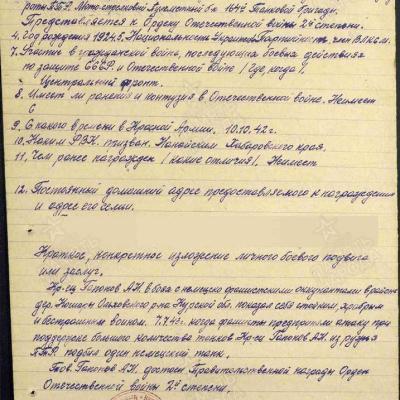 роты ПТР. Мото-стрелкового Пулеметного б-на 164й Танковой бригады.
Представляется к Ордену Отечественной войны 2й степени.
4. Год рождения 1924. 5. Национальность Украинец Партийность член ВЛКСМ.
7. Участие в гражданской войне, последующих боевых действиях
по защите СССР и Отечественной войне /где, когда/.
Центральный фронт.
8. Имеет ли ранения и контузия в Отечественной войне. Не имеет
С
9. С какого времени в Красной Армии. 10.10.42г.
10. Каким РВК. призван. Нанайским Хабаровского края.
11. Чем ранее награжден /какие отличия/. Не имеет
12. Постоянный домашний адрес предоставляемого к награждению
и адрес его семьи.
Краткое, конкретное изложение личного боевого подвига
или заслуг.
Кр-ец Гапонов А.Н. в боях с немецко фашистскими оккупантами в районе
дер. Ольховского р-на Курской обл. показал себя стойким, храбрым
и бесстрашным воином. 7.7.43г. когда фашисты предприняли атаку при
поддержке большого количества танков Кр-ец Гапонов А.Н. из ружья
ПТР. подбил один немецкий танк.
Тов. Гапонов А.Н. достоин Правительственной награды Орден
Отечественной войны 2й степени.